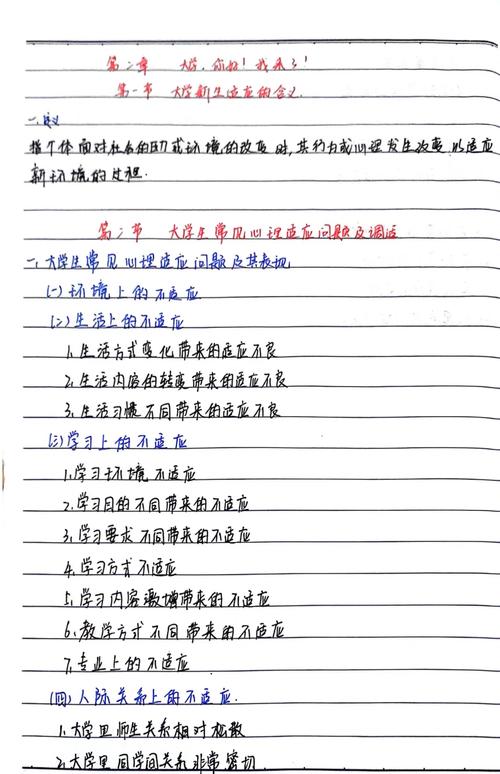 第二章 大学，你好！我来了！
第一节 大学新生适应的含义.
一、定义
指个体面对社会的或环境的改变时，其行为或心理发生改变以适应
新环境的过程.
第二节 大学生常见心理适应问题及调适
一、大学生常见心理适应问题及其表现
(一)环境上的不适应
(二)生活上的不适应
1、生活方式变化带来的适应不良
2、生活内容的转变带来的适应不良
3、生活习惯不同带来的适应不良
(三)学习上的不适应
1、学习环境不适应
2、学习目的不同带来的不适应
3、学习要求不同带来的不适应
4、学习方式不适应
5、学习内容激增带来的不适应
6、教学方式不同带来的不适应
7、专业上的不适应
(四)人际关系上的不适应.
1、大学里师生关系相对松散
2、大学里同学间关系非常密切